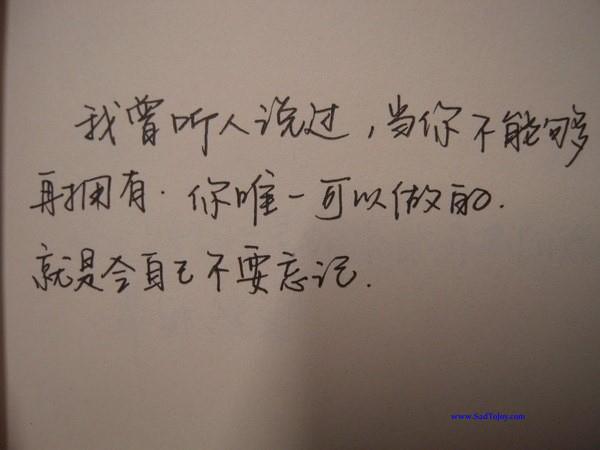 我曾听人说过，当你不能够
再拥有.你唯一可以做的.
就是令自己不要忘记.
www.SadToJoy.com